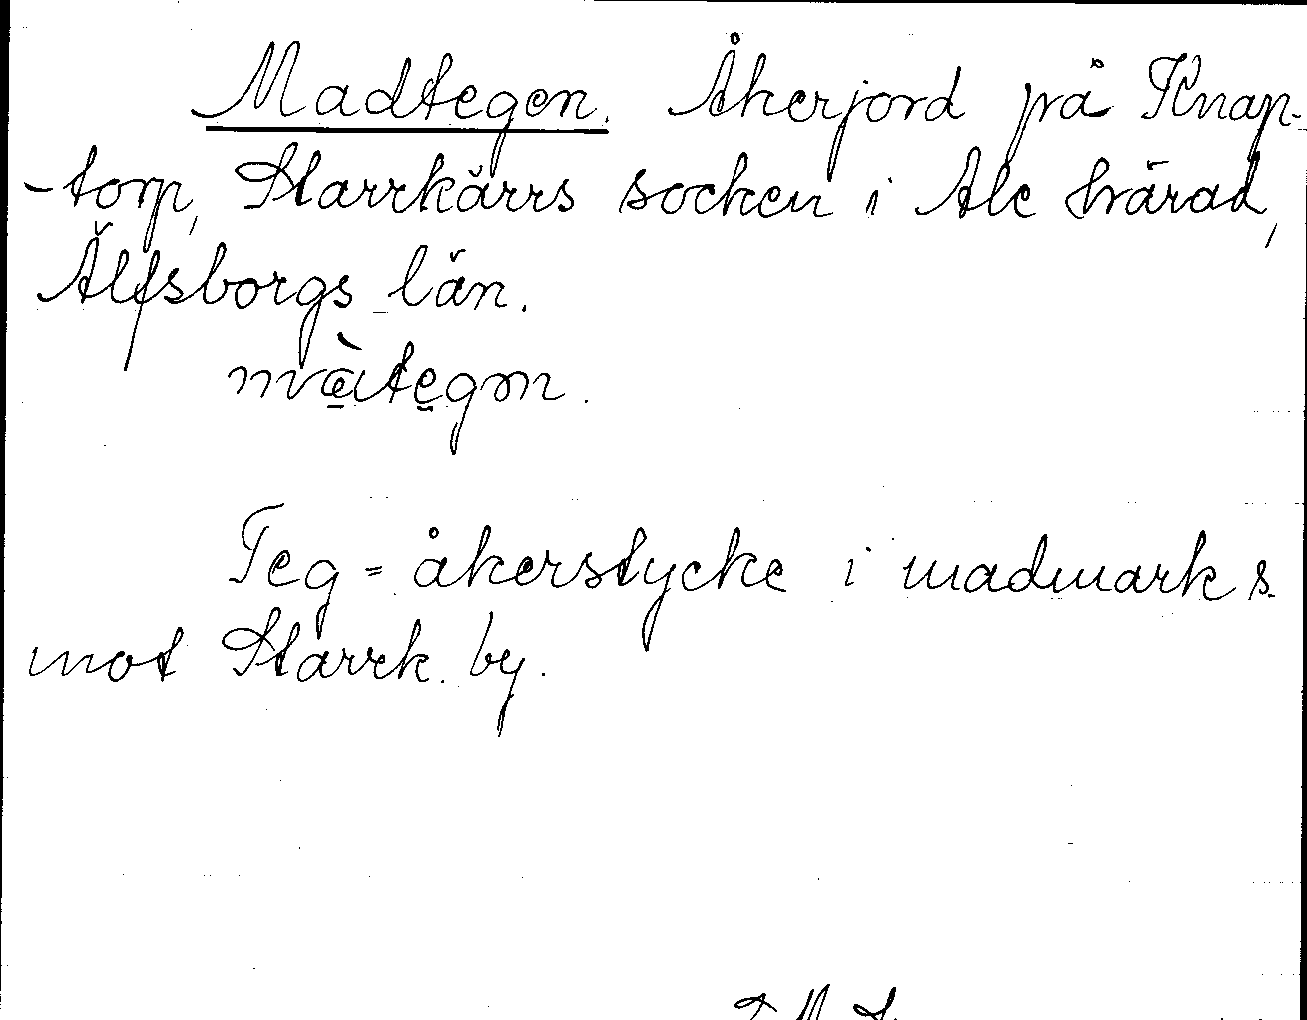 Madtegen. Åkerjord på Knap-
-torp, Starrkärrs socken i Ale härad,
Älfsborgs län.
Teg = åkerstycke i madmark s.
mot Starrk. by.